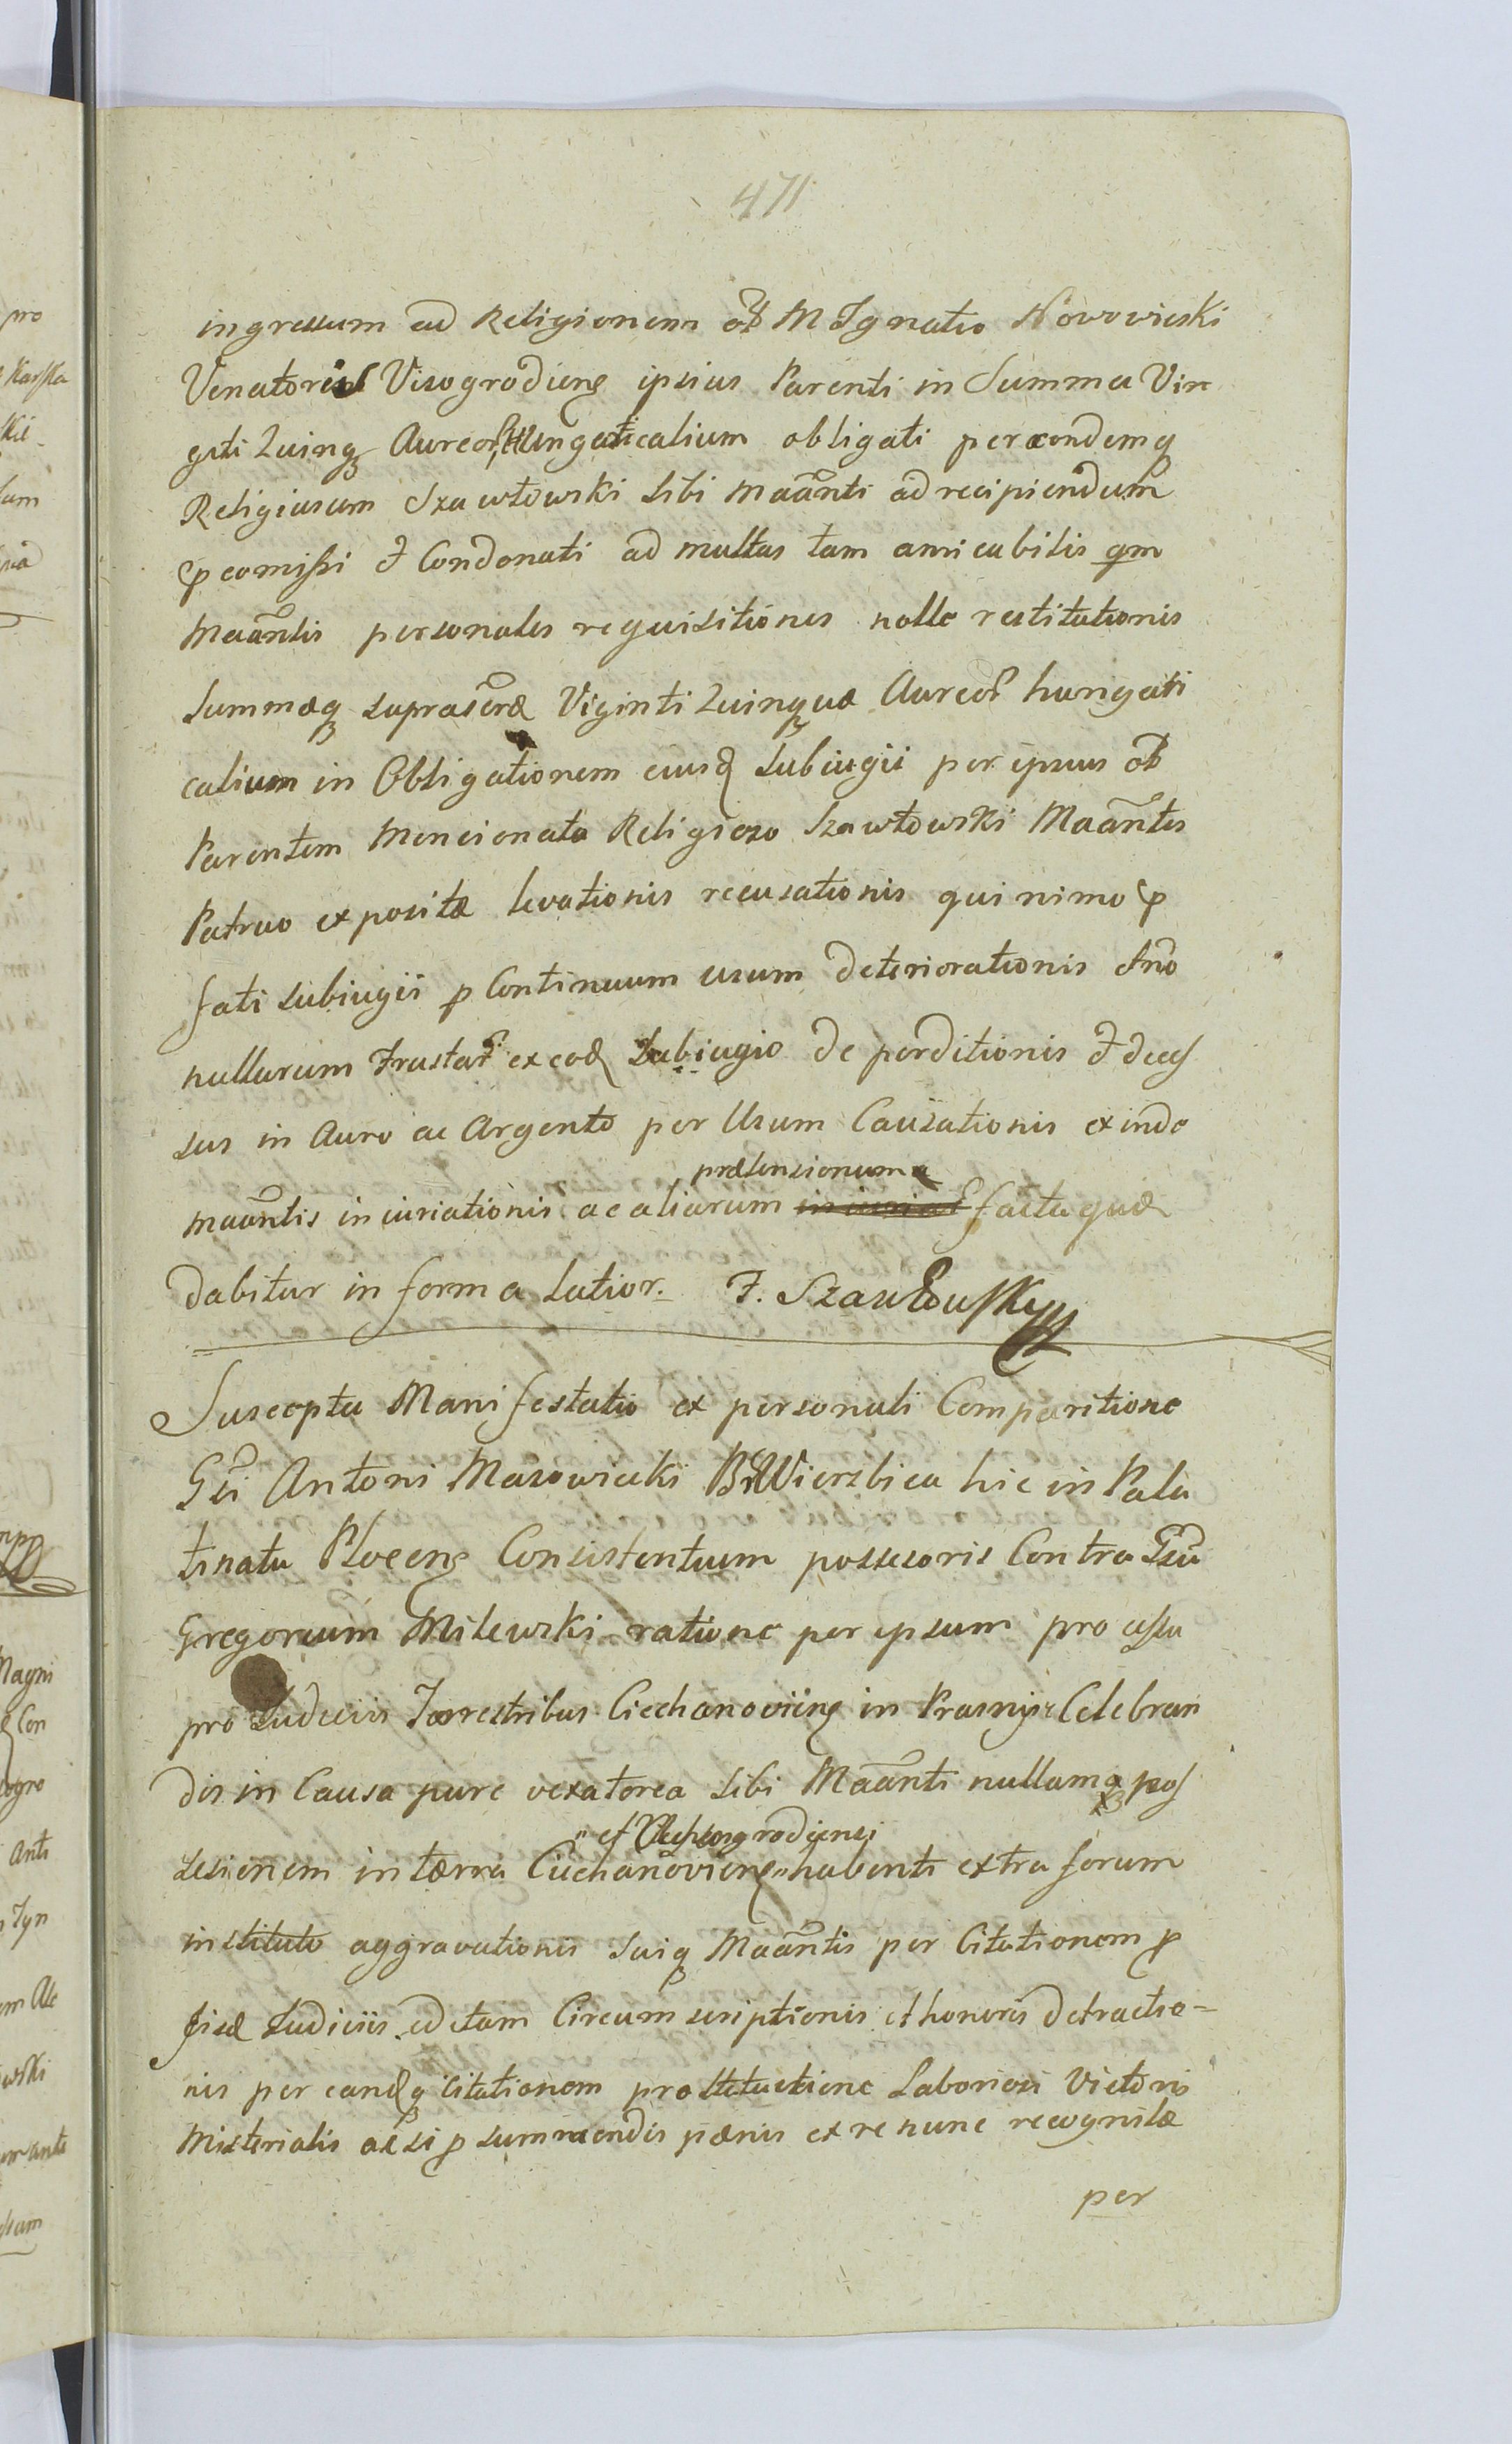 471
ingressum ad Religionem oB M Ignatio Nowowieski
Venatoris Visogrodiens ipsius Parenti in Summa Vin
giti Quinq Aureor Hungaticalium obligati per eondemq
Religiosum Szawłowski Sibi Maanti ad recipiendum
pcomissi & Condonati ad multas tam amicabilis qm
Maantis personales requisitiones nolle restitutionis
Summaeq suprascrae Viginti Quinquae Aureor hungati
calium in Obligationem eiusd Subiugii per ipsius oB
Parentem Mencionato Religiozo Szawłowski Maantis
Patruo expositae levationis recusationis quinimo p
fati subiugii p Continuum usum deteriorationis &no
nullarum Frustar ex eod Subiugio deperditionis & deces
sus in Auro ac Argento per Usum Causationis exinde
praetensionum
maantis iniuriationis ac aliarum facta quae
dabitur in forma latior. F. Szawłowsky
Suscepta Manifestatio ex personali Comparitione
Gsi Antoni Mazowiecki B Wierzbica hic in Pala
tinatu Plocens Consistentium possesoris Contra Gsu
Gregorium Milewski ratione per ipsum pro cassu
pro Iudiciis Terrestribus Ciechanoviens in Prasnysz Celebran
dis in Causa pure vexatorea Sibi Maanti nullamq pos
sesionem in terra Ciechanoviens habenti extra forum
instituto aggravationis Suiq Maantis per Citationem p
fisd Iudiciis editam Circumscriptionis et honoris detractio-
nis per eandq Citationem prostitutione Laboriosi Victoris
Misterialis acsi p summendis paenis ex re nunc recognitae
per